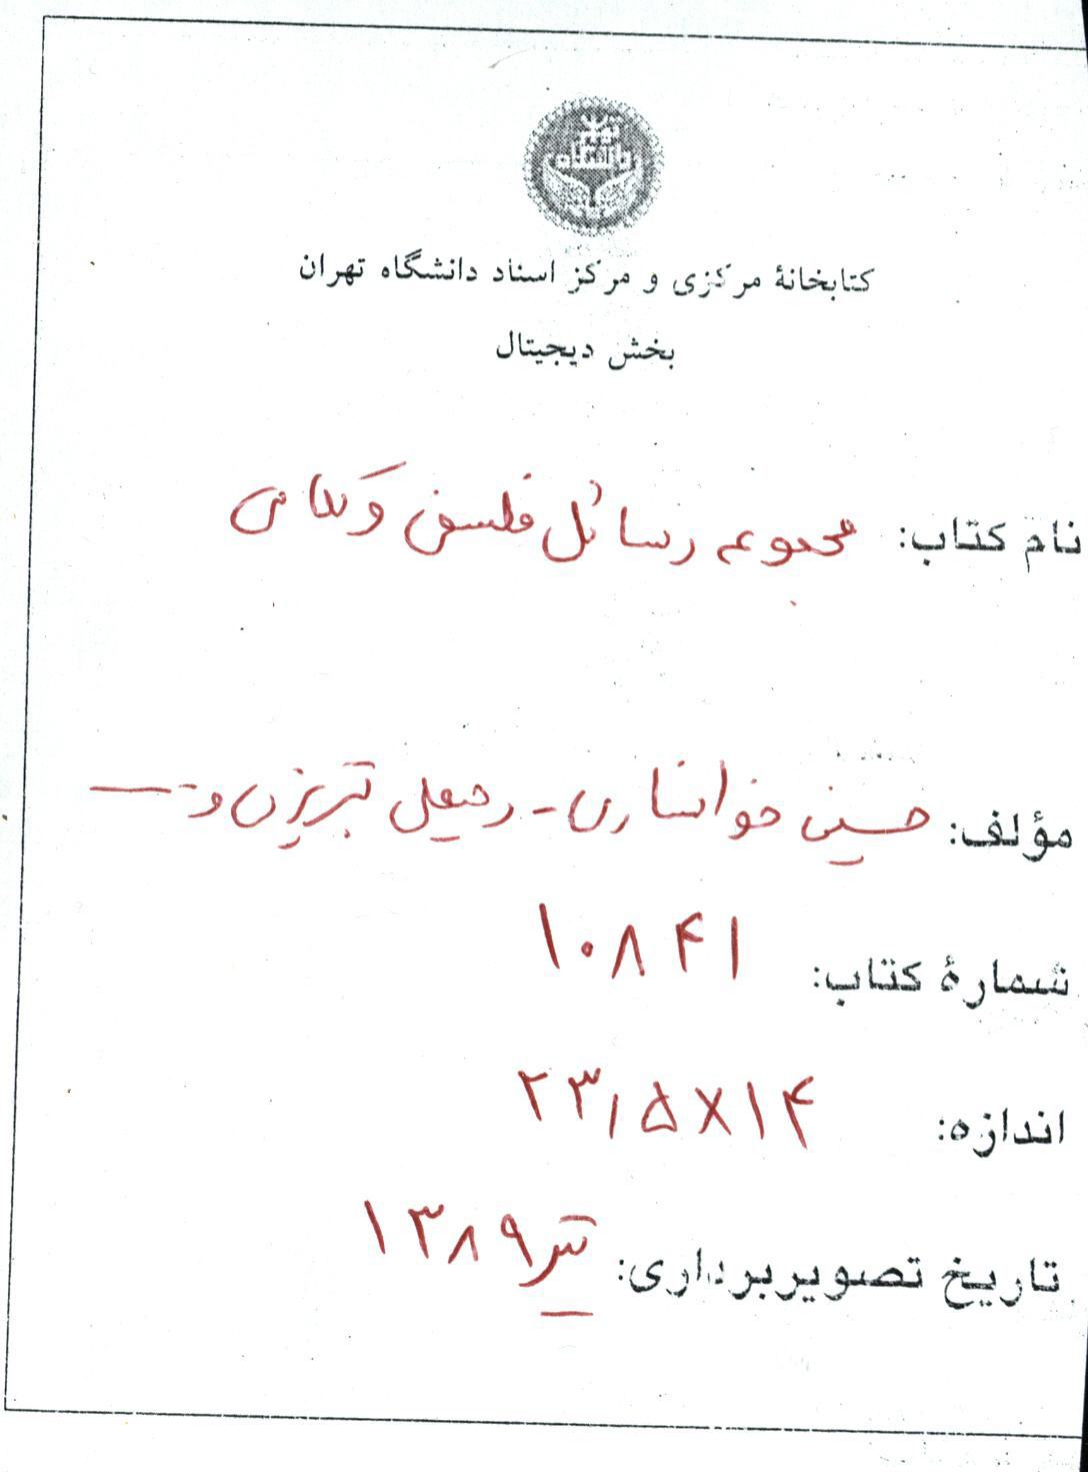 دانشگاه تهران
کتابخانهٔ مرکزی و مرکز اسناد دانشگاه تهران
بخش دیجیتال
نام کتاب: مجموعه رسائل فلسفی و کلامی
مؤلف: حسین خوانساری - رجبعلی تبریزی و ...
شمارهٔ کتاب: ۱۰۸۴۱
اندازه: ۲۳٫۵×۱۴
تاریخ تصویربرداری: تیر ۱۳۸۹